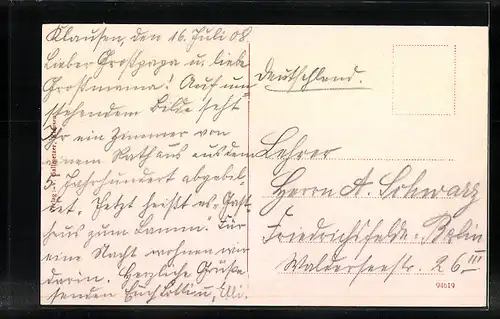 Klausen, den 16. Juli 08.
Lieber Großpapa u. liebe
Großmama! Auf um-
stehendem Bilde seht
Ihr ein Zimmer von
einem Rathaus aus dem
Jahrhundert abgebil-
det. Jetzt heißt es „Gast-
haus zum Lamm". Für
eine Nacht wohnen wir
darin. Herzliche Grüße
senden Euch u. Elli.
Deutschland.
Lehrer
Herrn A. Schwarz
Friedrichsfelde-Berlin
Walderseestr. 26 III
94619